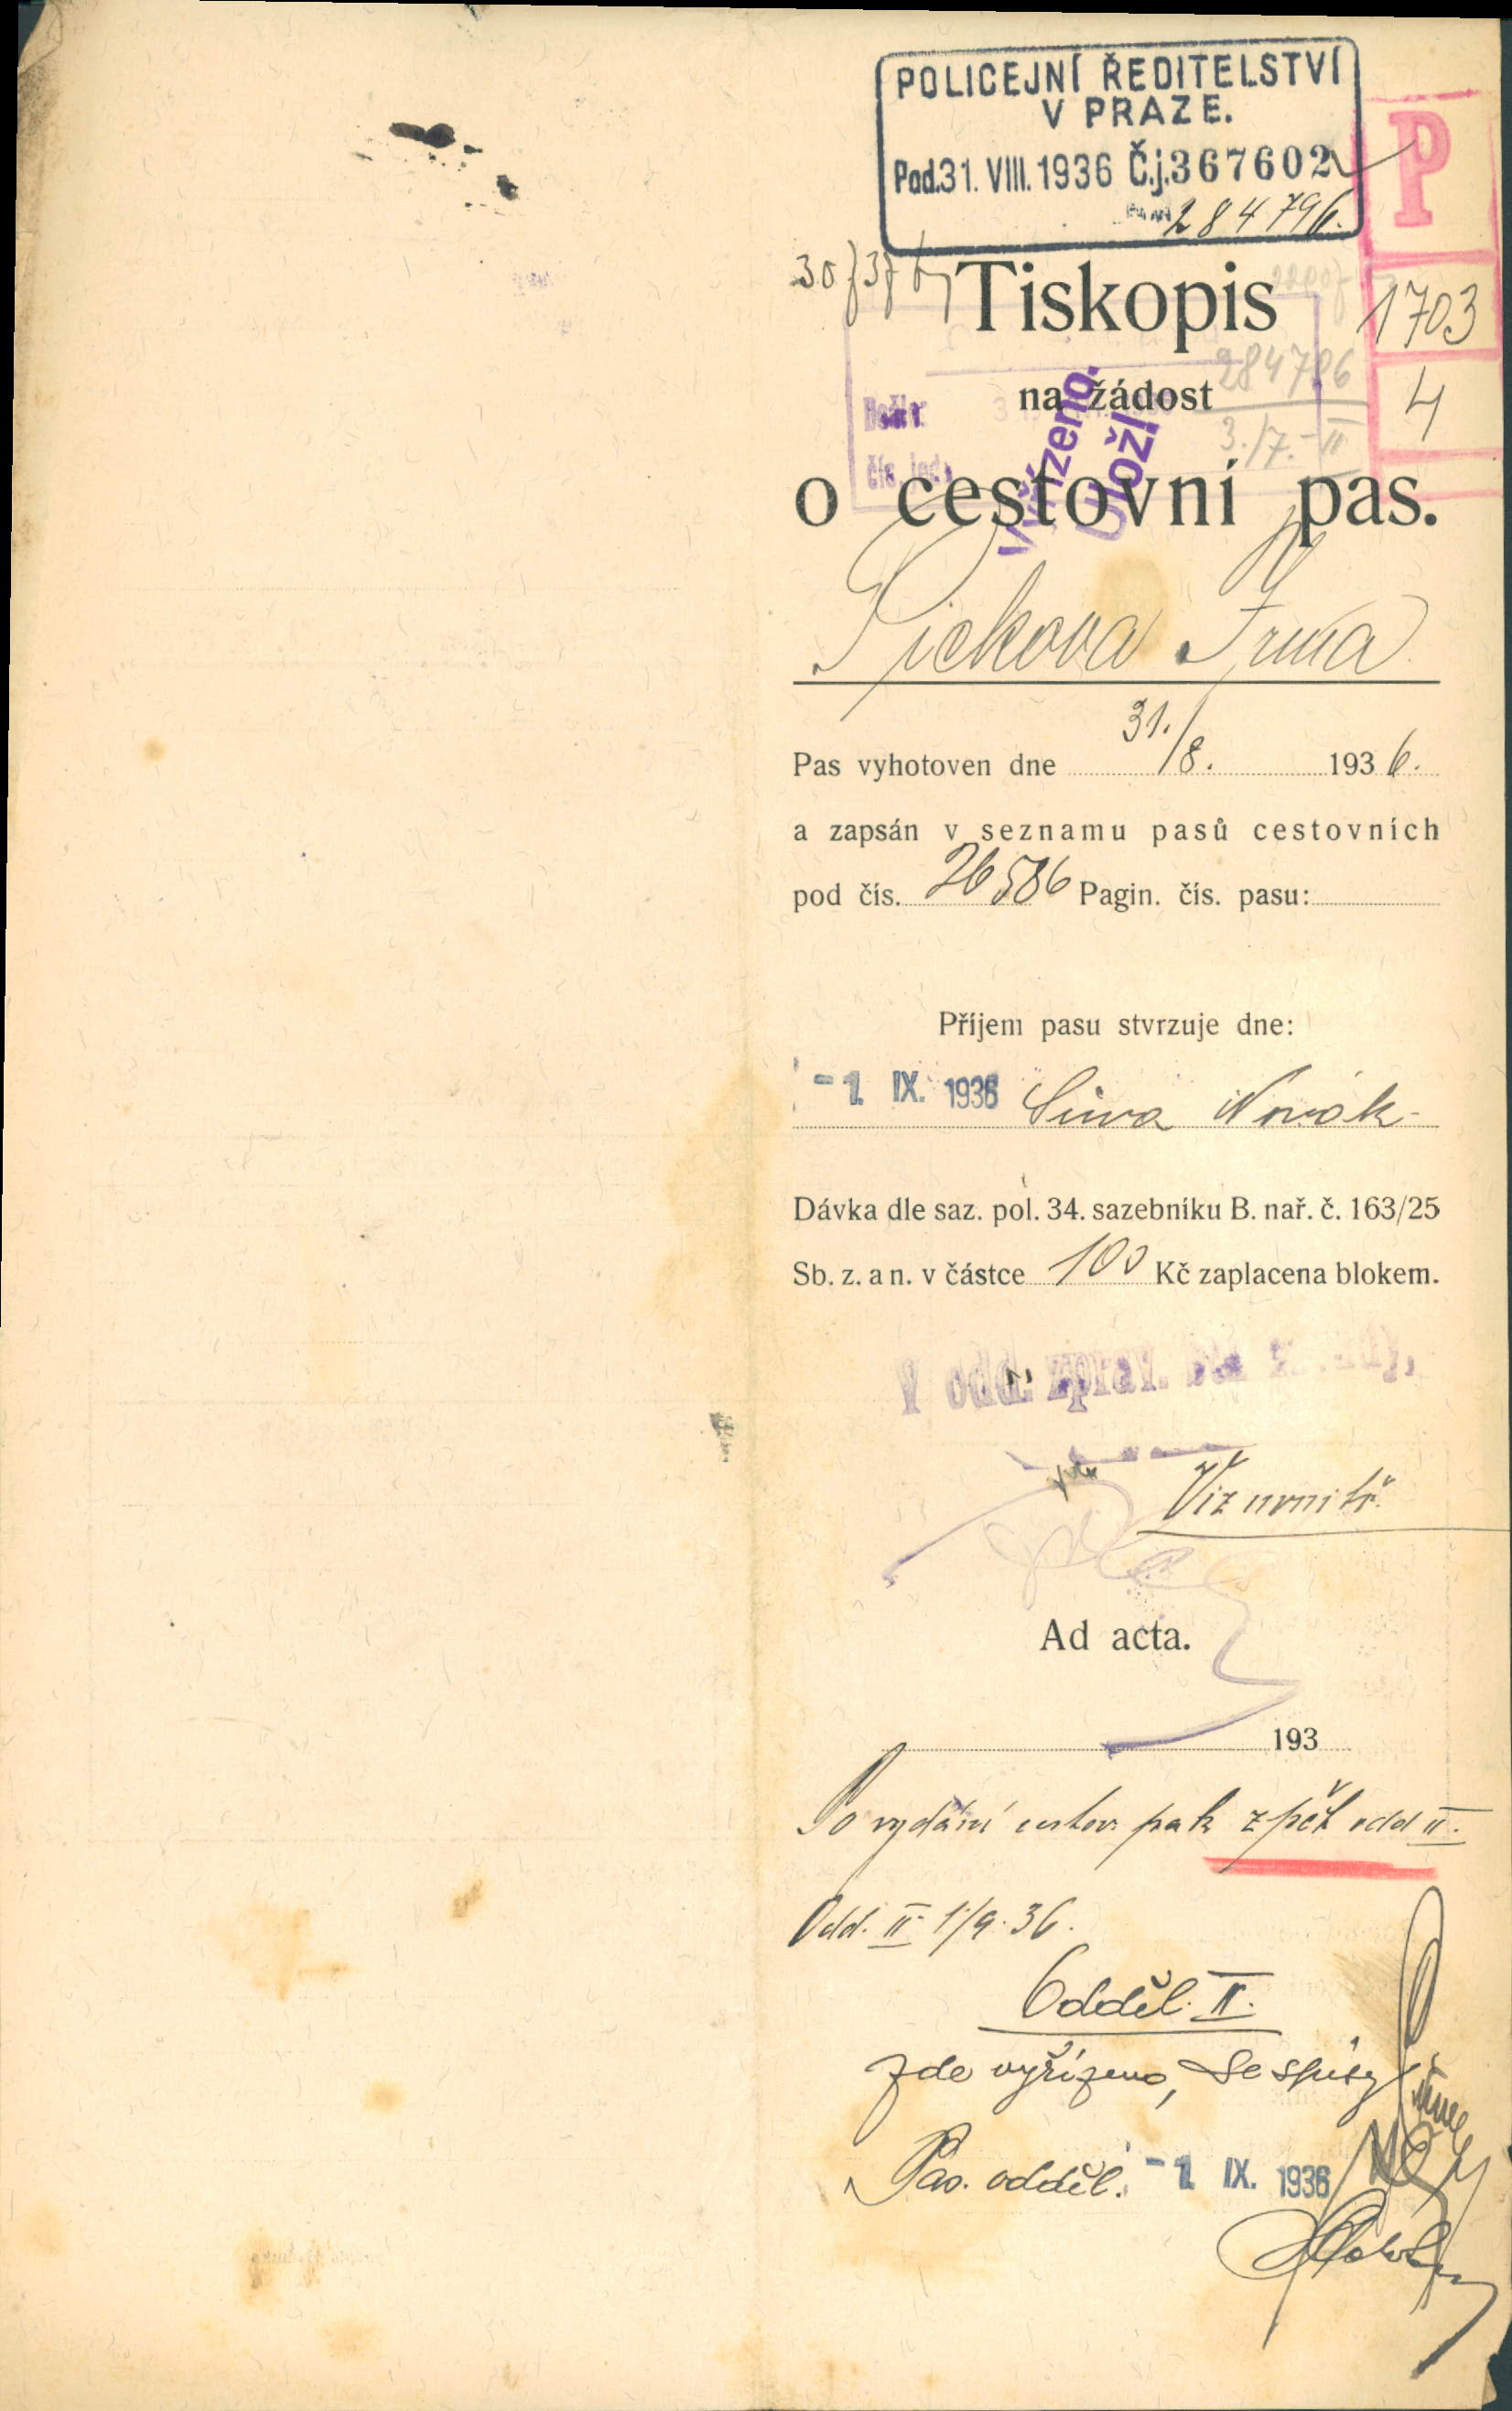 POLICEJNÍ ŘEDITELSTVÍ
V PRAZE.
Pod.31. VIII. 1936 Č.j.367602
284796.
P
1703
4
Tiskopis
284786
na žádost
3./7.-II
Došlo:
čís. jed.
Vyřízeno.
Uložit
o cestovní pas.
Pickova Irma
Pas vyhotoven dne 31./8. 1936.
a zapsán v seznamu pasů cestovních
pod čís. 26586 Pagin. čís. pasu:
Příjem pasu stvrzuje dne:
- 1. IX. 1936 Novák
Dávka dle saz. pol. 34. sazebníku B. nař. č. 163/25
Sb. z. a n. v částce 100 Kč zaplacena blokem.
V odd. zprav.
Viz uvnitř.
Ad acta.
193
Po vydání cestov. pak zpět odd II.
Odd. II. 1/9. 36.
Odděl. II.
zde vyřízeno, se spisy
Pas. odděl. - 1. IX. 1936